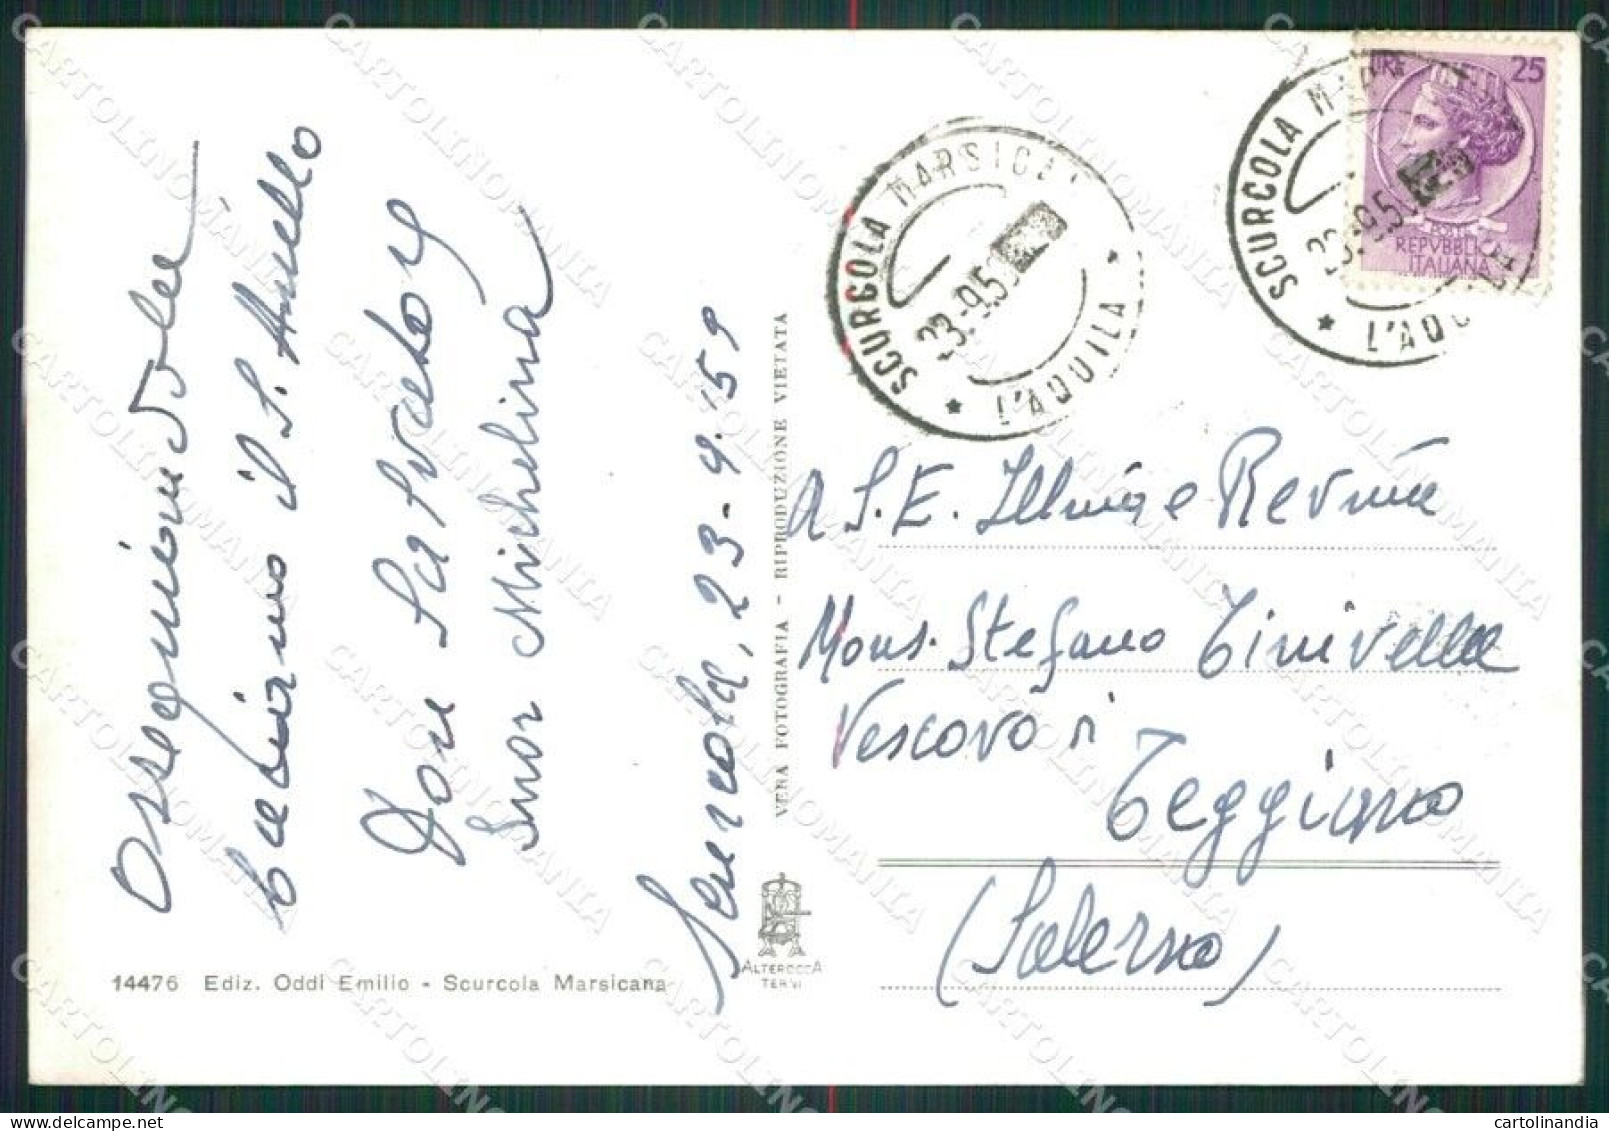 Ossequiandola
baciamo il S. Anello
Don Salvatore
Suor Michelina
Scurcola, 23-9-59
14476 Ediz. Oddi Emilio - Scurcola Marsicana
ALTEROCCA
TERNI
VERA FOTOGRAFIA - RIPRODUZIONE VIETATA
SCURCOLA MARSICA
23.-9.59
* L'AQUILA *
SCURCOLA MA
23.-9.5
* L'AQU
LIRE 25
POSTE
REPVBBLICA
ITALIANA
A S.E. Illma e Revma
Mons. Stefano Tinivella
Vescovo di
Teggiano
(Salerno)
CARTOLINOMANIA
cartolinandia